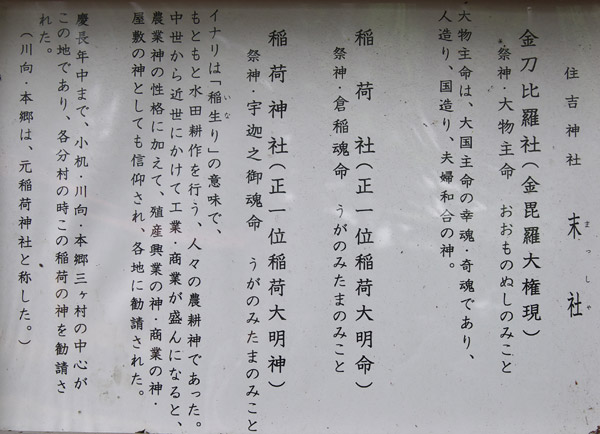 住吉神社 末社
まっしゃ
金刀比羅社(金毘羅大権現)
祭神・大物主命 おおものぬしのみこと
・大物主命は、大国主命の幸魂・奇魂であり、
人造り、国造り、夫婦和合の神。
稲荷社(正一位稲荷大明命)
祭神・倉稲魂命 うがのみたまのみこと
稲荷神社(正一位稲荷大明神)
祭神・宇迦之御魂命 うがのみたまのみこと
イナリは「稲生り」の意味で、
いな
もともと水田耕作を行う、人々の農耕神であった。
中世から近世にかけて工業・商業が盛んになると、
農業神の性格に加えて、殖産興業の神・商業の神・
屋敷の神としても信仰され、各地に勧請された。
慶長年中まで、小机・川向・本郷三ヶ村の中心が
この地であり、各分村の時この稲荷の神を勧請さ
れた。
(川向・本郷は、元稲荷神社と称した。)